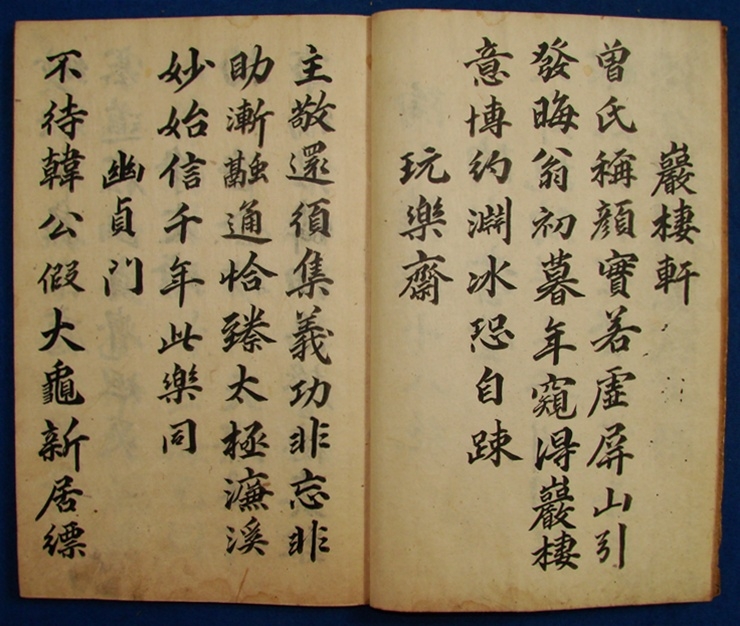 巖棲軒
曾氏稱顔實若虛屏山引
發晦翁初暮年窺得巖棲
意博約淵冰恐自踈
玩樂齋
主敬還須集義功非忘非
助漸融通恰臻太極濂溪
妙始信千年此樂同
幽貞門
不待韓公假大龜新居縹